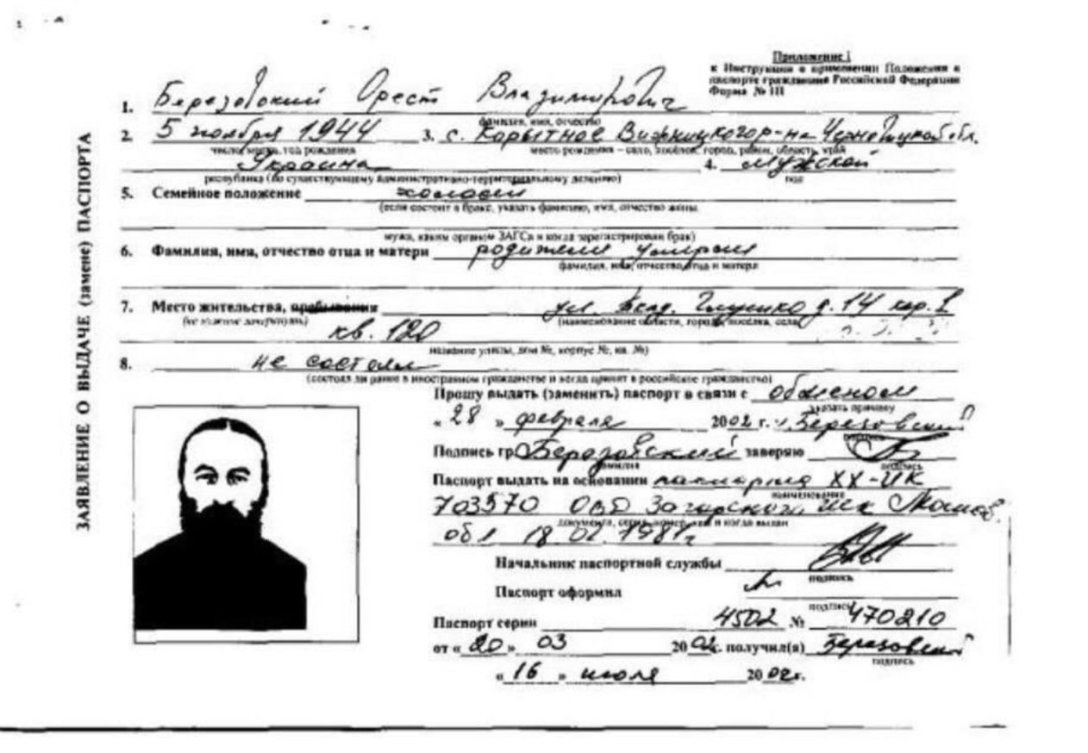 Приложение 1
к Инструкции о применении Положения о
паспорте гражданина Российской Федерации
Форма №
ЗАЯВЛЕНИЕ О ВЫДАЧЕ (замене) ПАСПОРТА
1. Березовский Орест Владимирович
фамилия, имя, отчество
2. 5 ноября 1944 3. с. Корытное Вижницкого р-на Черновицкой обл.
число, месяц, год рождения место рождения – село, поселок, город, район, область, край
Украина 4. мужской
республика (по существующему административно-территориальному делению) пол
5. Семейное положение холост
(если состоит в браке, указать фамилию, имя, отчество жены
мужа, каким органом ЗАГСа и когда зарегистрирован брак)
6. Фамилия, имя, отчество отца и матери родители умерли
фамилия, имя, отчество отца и матери
7. Место жительства, пребывания ул. Глушко д. 14 кор. 1
(не нужное зачеркнуть) (наименование области, города, поселка, села
кв. 120
название улицы, дом №, корпус №, кв. №)
8. не состоял
(состоял ли ранее в иностранном гражданстве и когда принят в российское гражданство)
Прошу выдать (заменить) паспорт в связи с обменом
указать причину
« 28 » февраля 2002 г. Березовский
Подпись гр. Березовский заверяю
фамилия подпись
Паспорт выдать на основании паспорта XX-ИК
наименование
703570 ОВД Загорского
документа, серия, номер, кем и когда выдан
обл 18 02 1981г
Начальник паспортной службы
подпись
Паспорт оформил
подпись
Паспорт серии 4502 № 470210
от « 20 » 03 2002г. получил(а) Березовский
подпись
« 16 » июля 2002г.